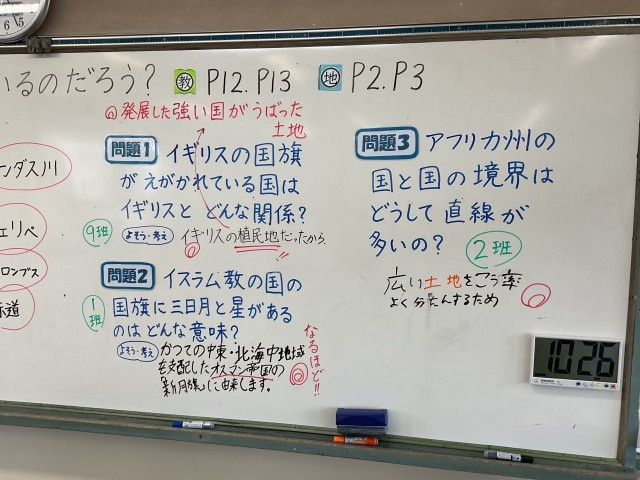 いるのだろう？ 教 P12.P13 地 P2.P3
発展した強い国がうばった
土地
ンダス川
ロンブス
問題1 イギリスの国旗
がえがかれている国は
イギリスと どんな関係？
9班 よそう・考え イギリスの植民地だったから
問題2 イスラム教の国の
国旗に三日月と星がある
のは どんな意味？
1班
よそう・考え かつての中東・北海中地域
を支配したオスマン帝国の
新月旗に由来します。
なるほど!!
問題3 アフリカ州の
国と国の境界は
どうして直線が
多いの？
2班
広い土地をこう率
よく分たんするため
10:26